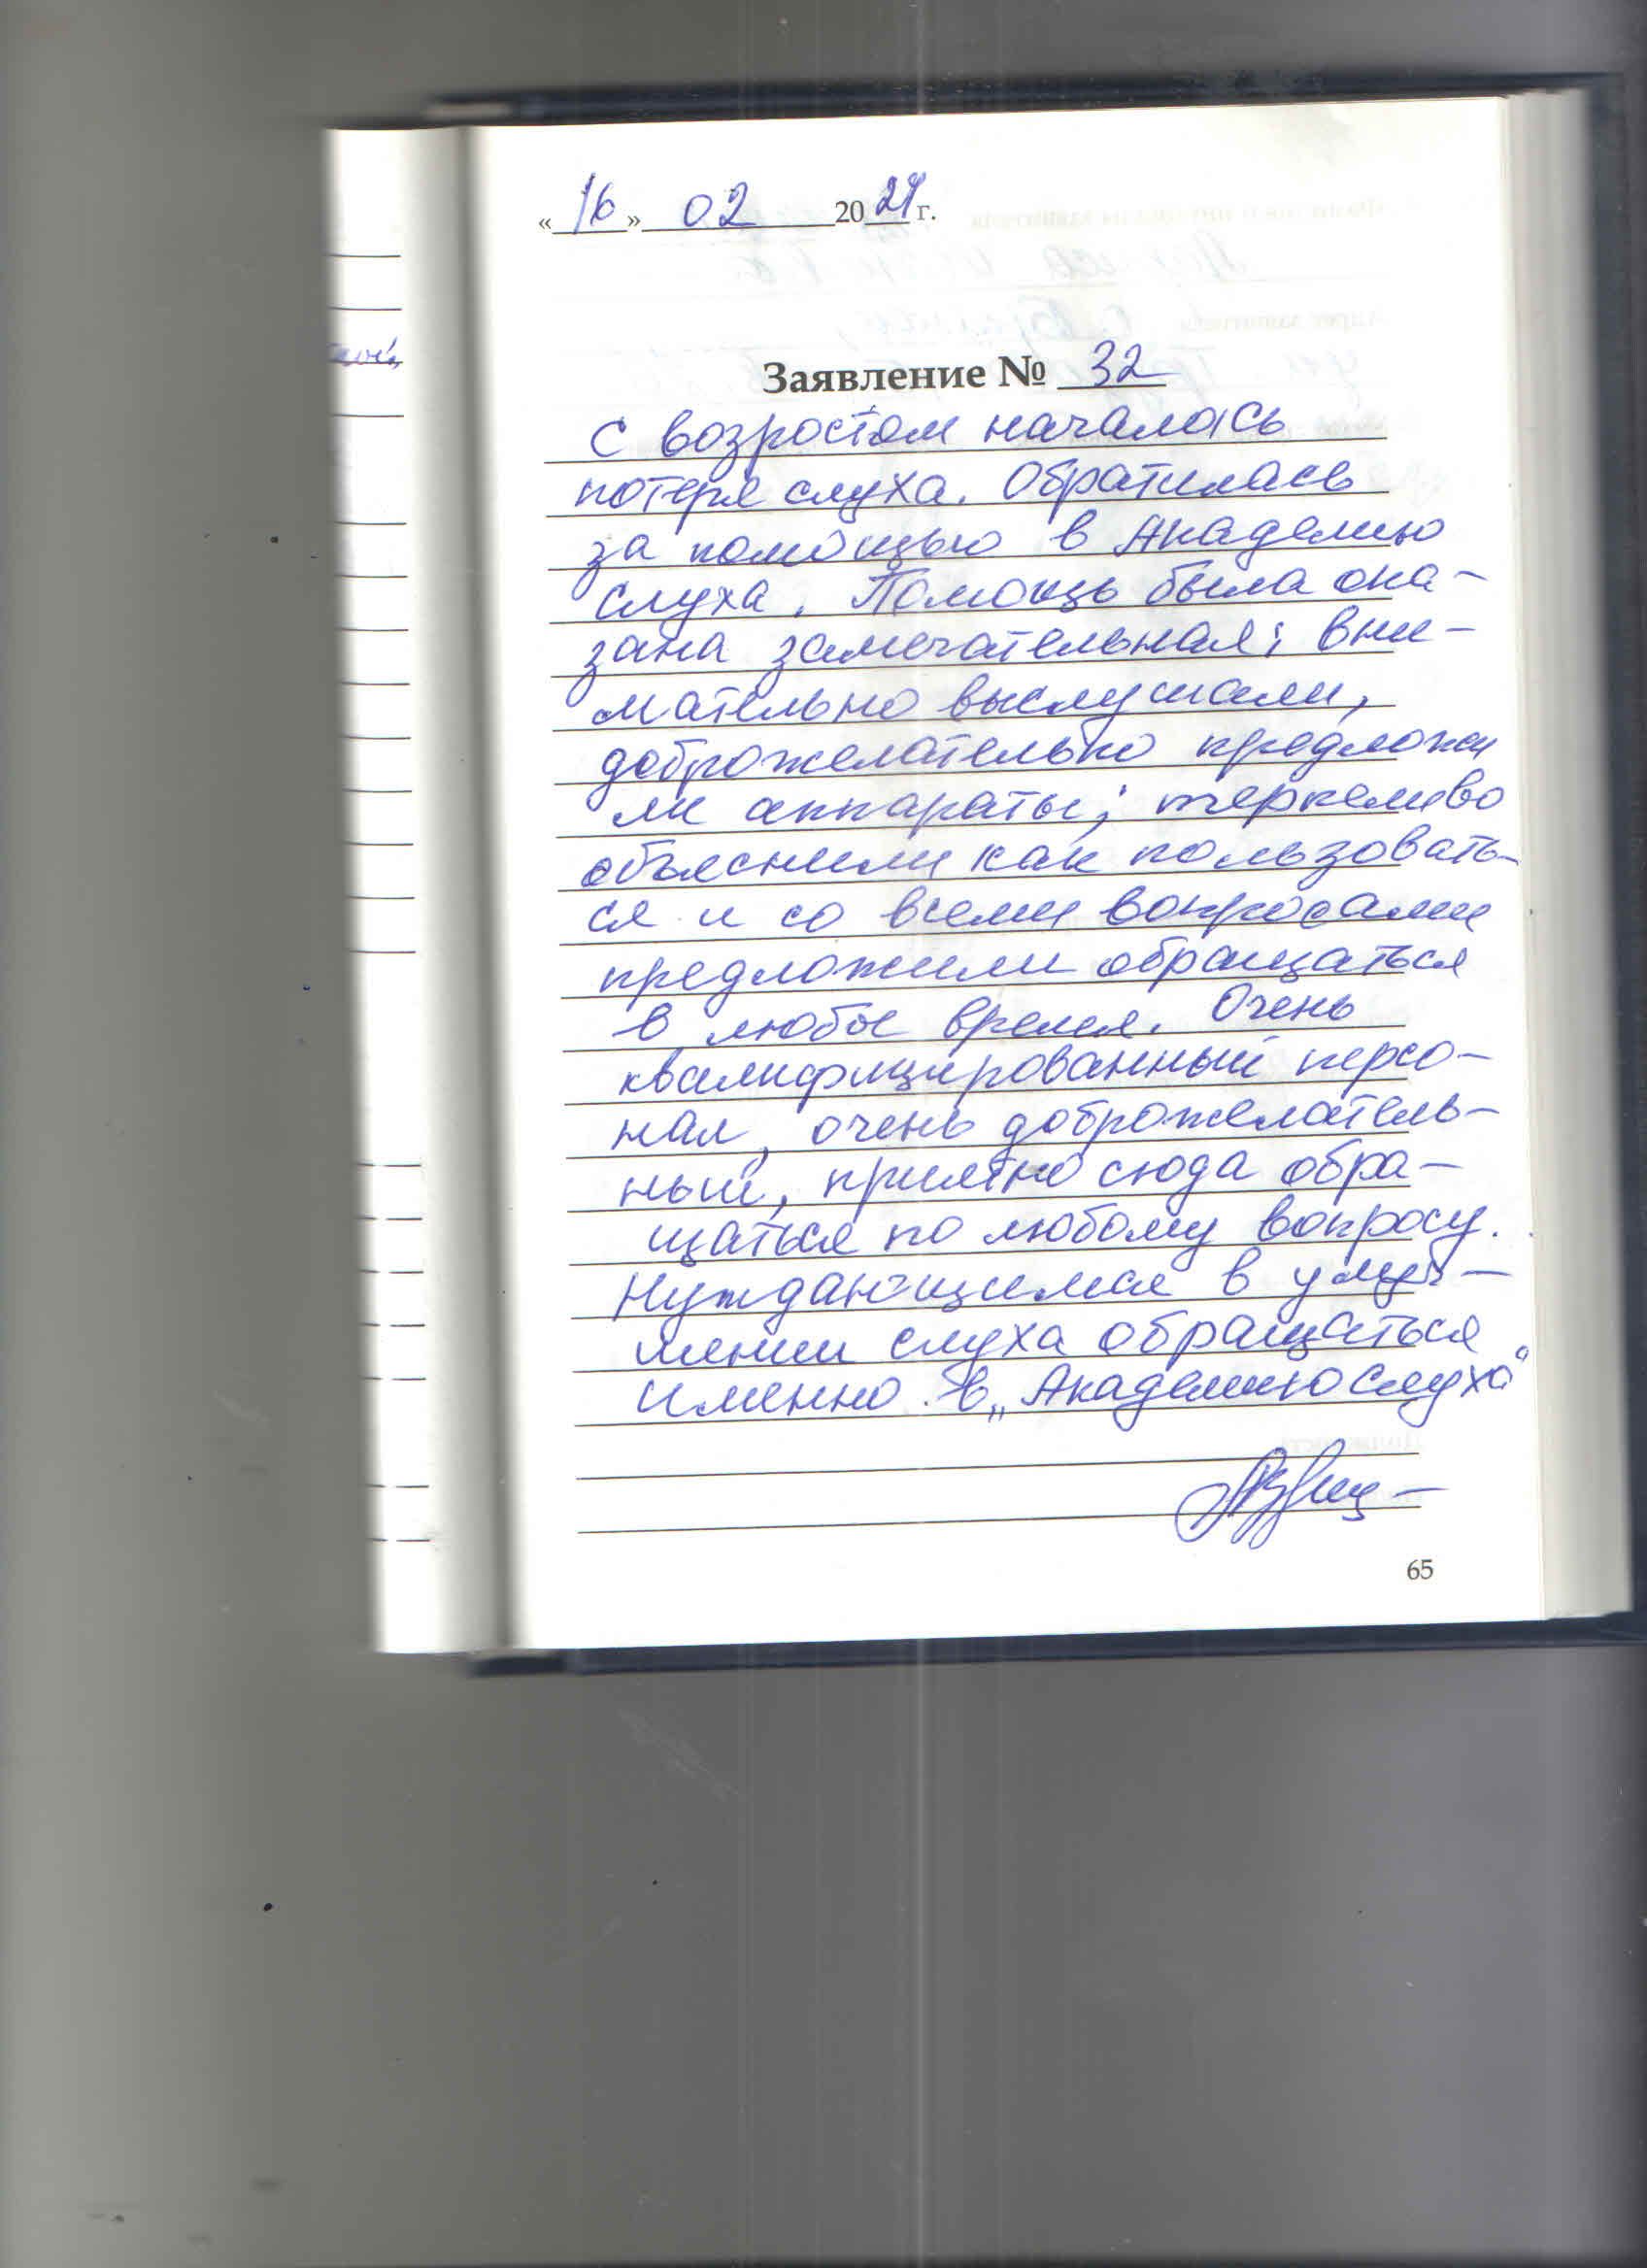 «16» 02 2021 г.
Заявление № 32
С возростом началась
потеря слуха. Обратилась
за помощью в Академию
слуха. Помощь была ока-
зана замечательная: вни-
мательно выслушали,
доброжелательно предложи
ли аппараты; терпеливо
объяснили как пользовать-
ся и со всеми вопросами
предложили обращаться
в любое время. Очень
квалифицированный персо-
нал, очень доброжелатель-
ный, приятно сюда обра-
щаться по любому вопросу.
Нуждающимся в улуч-
шении слуха обращаться
именно в „Академию слуха“
65